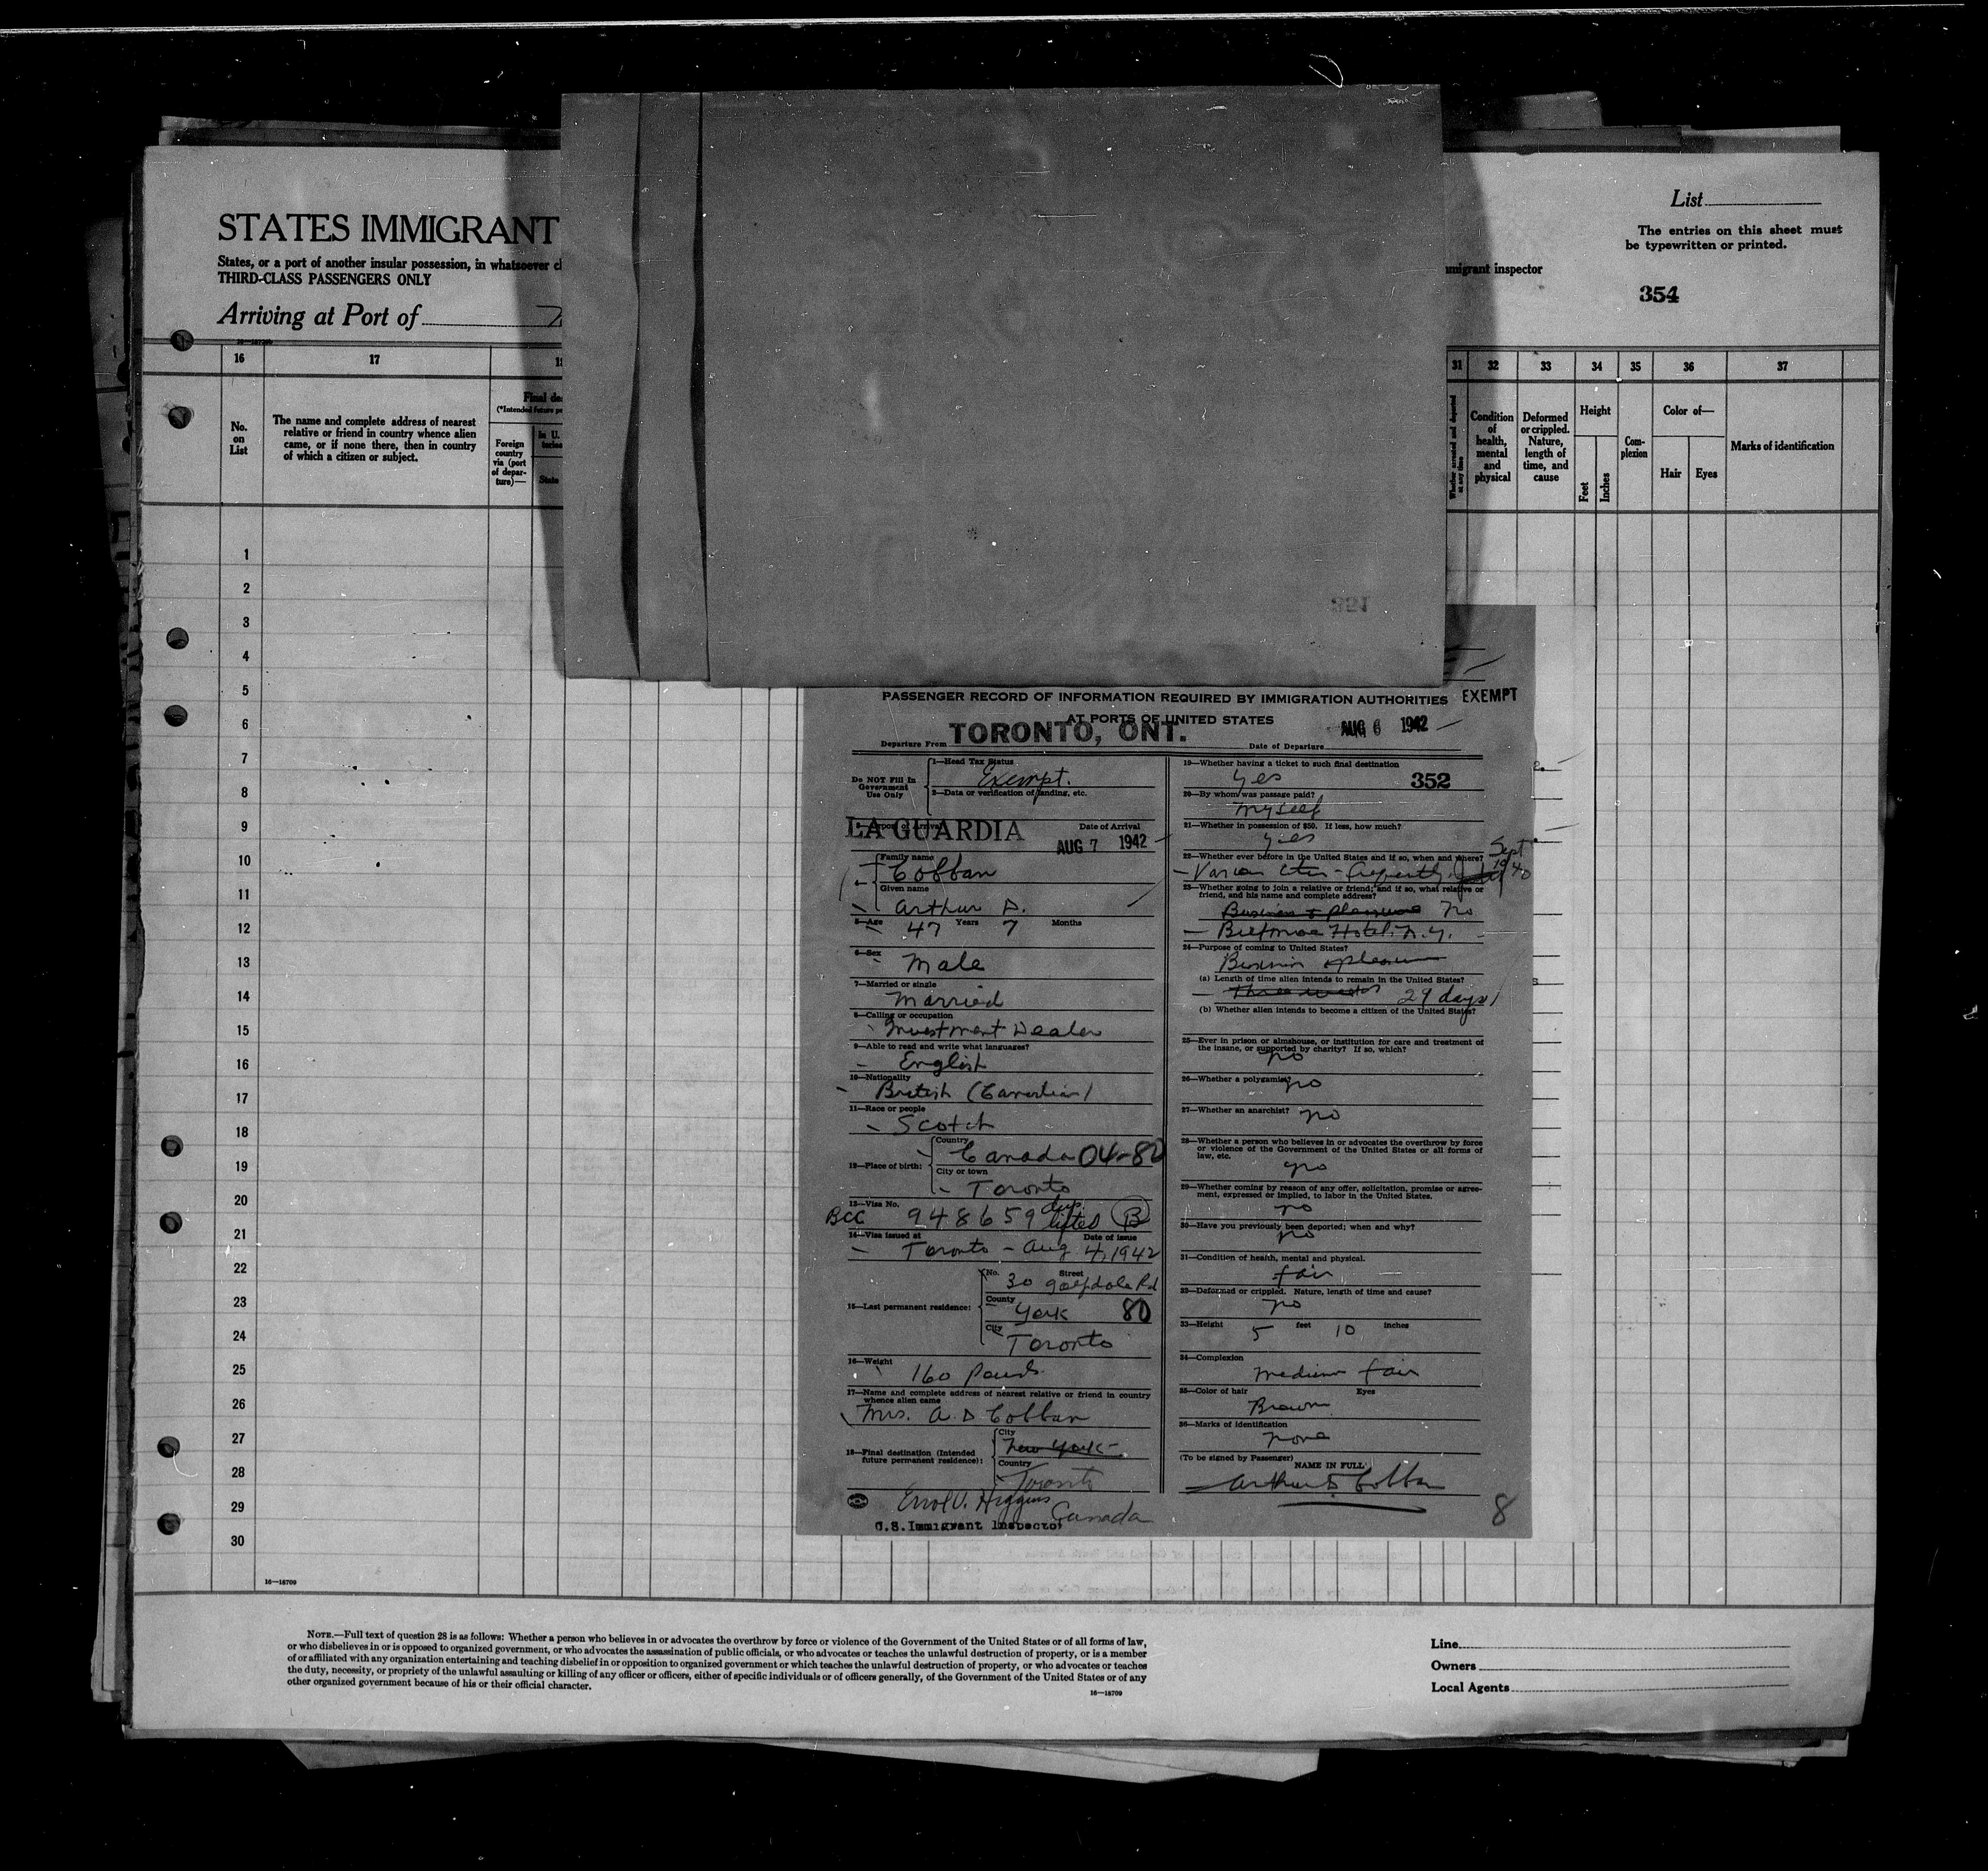 STATES IMMIGRANT
States, or a port of another insular possession, in whatsoever
THIRD-CLASS PASSENGERS ONLY
Arriving at Port of
immigrant inspector
List
The entries on this sheet must
be typewritten or printed.
354
16 17 31 32 33 34 35 36 37
No. on List
The name and complete address of nearest
relative or friend in country whence alien
came, or if none there, then in country
of which a citizen or subject.
Foreign country via (port of departure)—
State
Whether arrested and deported at any time
Condition of health, mental and physical
Deformed or crippled. Nature, length of time, and cause
Height
Feet
Inches
Complexion
Color of—
Hair
Eyes
Marks of identification
1
2
3
4
5
6
7
8
9
10
11
12
13
14
15
16
17
18
19
20
21
22
23
24
25
26
27
28
29
30
16—18709
351
PASSENGER RECORD OF INFORMATION REQUIRED BY IMMIGRATION AUTHORITIES EXEMPT
AT PORTS OF UNITED STATES
Departure From TORONTO, ONT. Date of Departure AUG 6 1942
Do NOT Fill In Government Use Only
1—Head Tax Status
Exempt.
2—Data or verification of landing, etc.
Port of Arrival LA GUARDIA Date of Arrival AUG 7 1942
Family name
Cobban
Given name
Arthur D.
5—Age 47 Years 7 Months
6—Sex
Male
7—Married or single
Married
8—Calling or occupation
Investment Dealer
9—Able to read and write what languages?
English
10—Nationality
British (Canadian)
11—Race or people
Scotch
12—Place of birth:
Country
Canada 04-80
City or town
Toronto
13—Visa No.
BCC 948659 dup. lifted B
14—Visa issued at Date of issue
Toronto - Aug 4, 1942
15—Last permanent residence:
No. Street
30 Golfdale Rd
County
York 80
City
Toronto
16—Weight
160 Pounds
17—Name and complete address of nearest relative or friend in country
whence alien came
Mrs. A. D Cobban
18—Final destination (Intended
future permanent residence):
City
New York
Country
Toronto
Canada
Errol V. Higgins
U.S. Immigrant Inspector
19—Whether having a ticket to such final destination
yes 352
20—By whom was passage paid?
myself
21—Whether in possession of $50. If less, how much?
yes
22—Whether ever before in the United States and if so, when and where?
frequently Sept 1940
23—Whether going to join a relative or friend; and if so, what relative or
friend, and his name and complete address?
Business & pleasure no
Biltmore Hotel. N.Y.
24—Purpose of coming to United States?
Business & pleasure
(a) Length of time alien intends to remain in the United States?
Three weeks 29 days
(b) Whether alien intends to become a citizen of the United States?
25—Ever in prison or almshouse, or institution for care and treatment of
the insane, or supported by charity? If so, which?
no
26—Whether a polygamist? no
27—Whether an anarchist? no
28—Whether a person who believes in or advocates the overthrow by force
or violence of the Government of the United States or all forms of
law, etc.
no
29—Whether coming by reason of any offer, solicitation, promise or agree-
ment, expressed or implied, to labor in the United States.
no
30—Have you previously been deported; when and why?
no
31—Condition of health, mental and physical.
fair
32—Deformed or crippled. Nature, length of time and cause?
no
33—Height 5 feet 10 inches
34—Complexion
medium fair
35—Color of hair Eyes
Brown
36—Marks of identification
none
(To be signed by Passenger)
NAME IN FULL
Arthur D. Cobban
8
NOTE.—Full text of question 28 is as follows: Whether a person who believes in or advocates the overthrow by force or violence of the Government of the United States or of all forms of law,
or who disbelieves in or is opposed to organized government, or who advocates the assassination of public officials, or who advocates or teaches the unlawful destruction of property, or is a member
of or affiliated with any organization entertaining and teaching disbelief in or opposition to organized government or which teaches the unlawful destruction of property, or who advocates or teaches
the duty, necessity, or propriety of the unlawful assaulting or killing of any officer or officers, either of specific individuals or of officers generally, of the Government of the United States or of any
other organized government because of his or their official character.
16—18709
Line
Owners
Local Agents